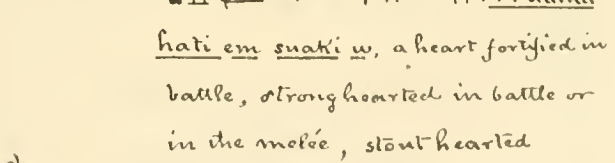 hati em suaki w, a heart fortified in
battle, strong hearted in battle or
in the melée, stout hearted